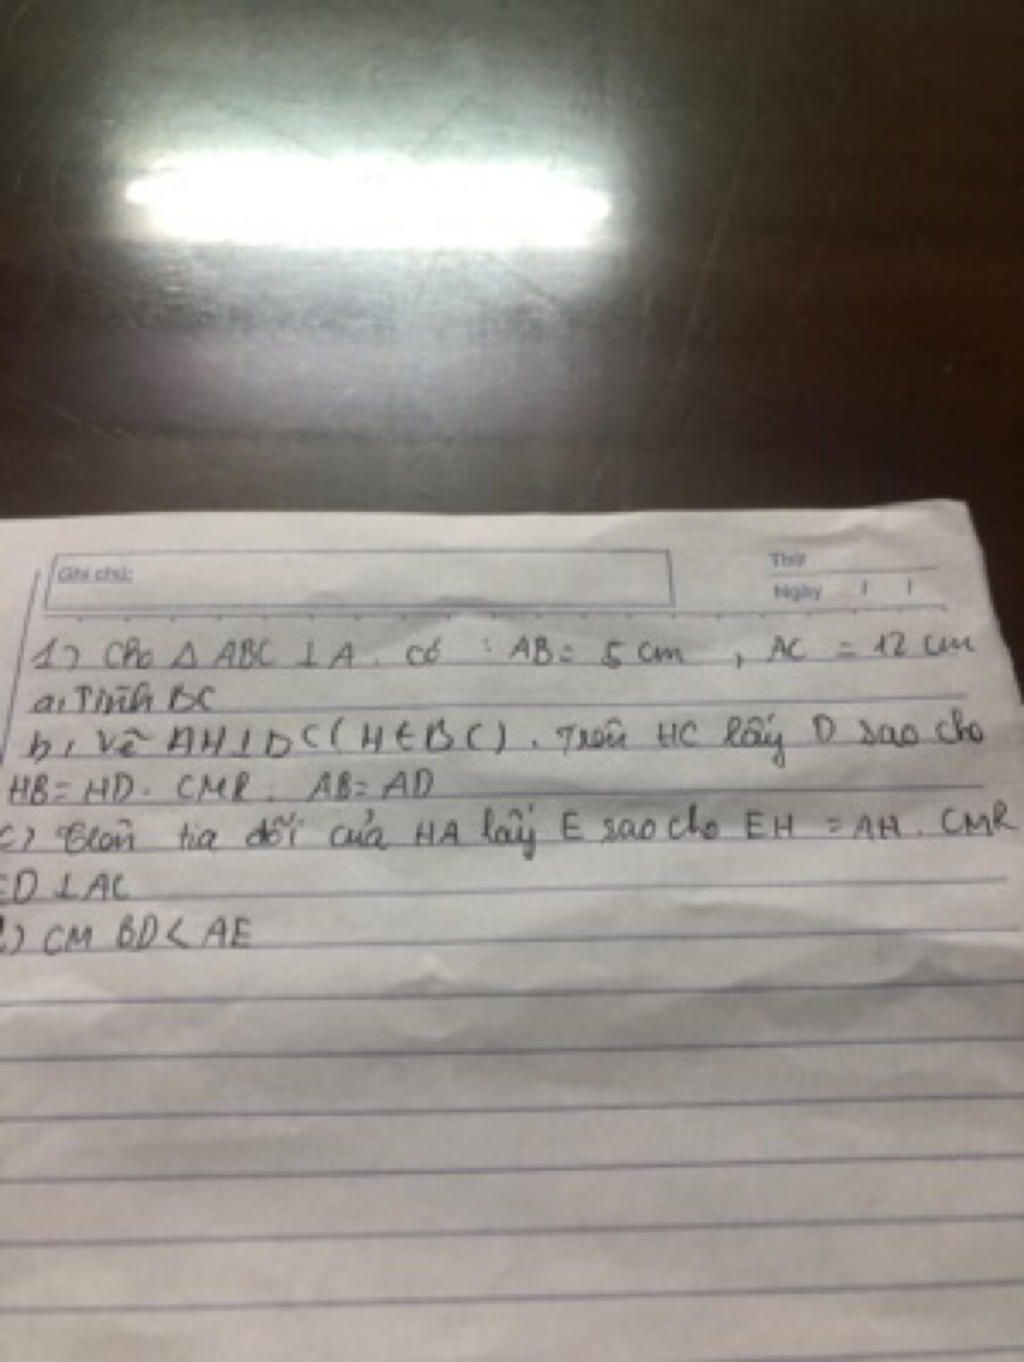 Ghi chú:
Thứ
Ngày / /
1) Cho Δ ABC ⊥ A. có : AB = 5 cm , AC = 12 cm
a, Tính BC
b, Vẽ AH ⊥ BC (H ∈ BC). Trên HC lấy D sao cho
HB = HD. CMR. AB = AD
c) Trên tia đối của HA lấy E sao cho EH = AH. CMR
ED ⊥ AC
) CM BD < AE